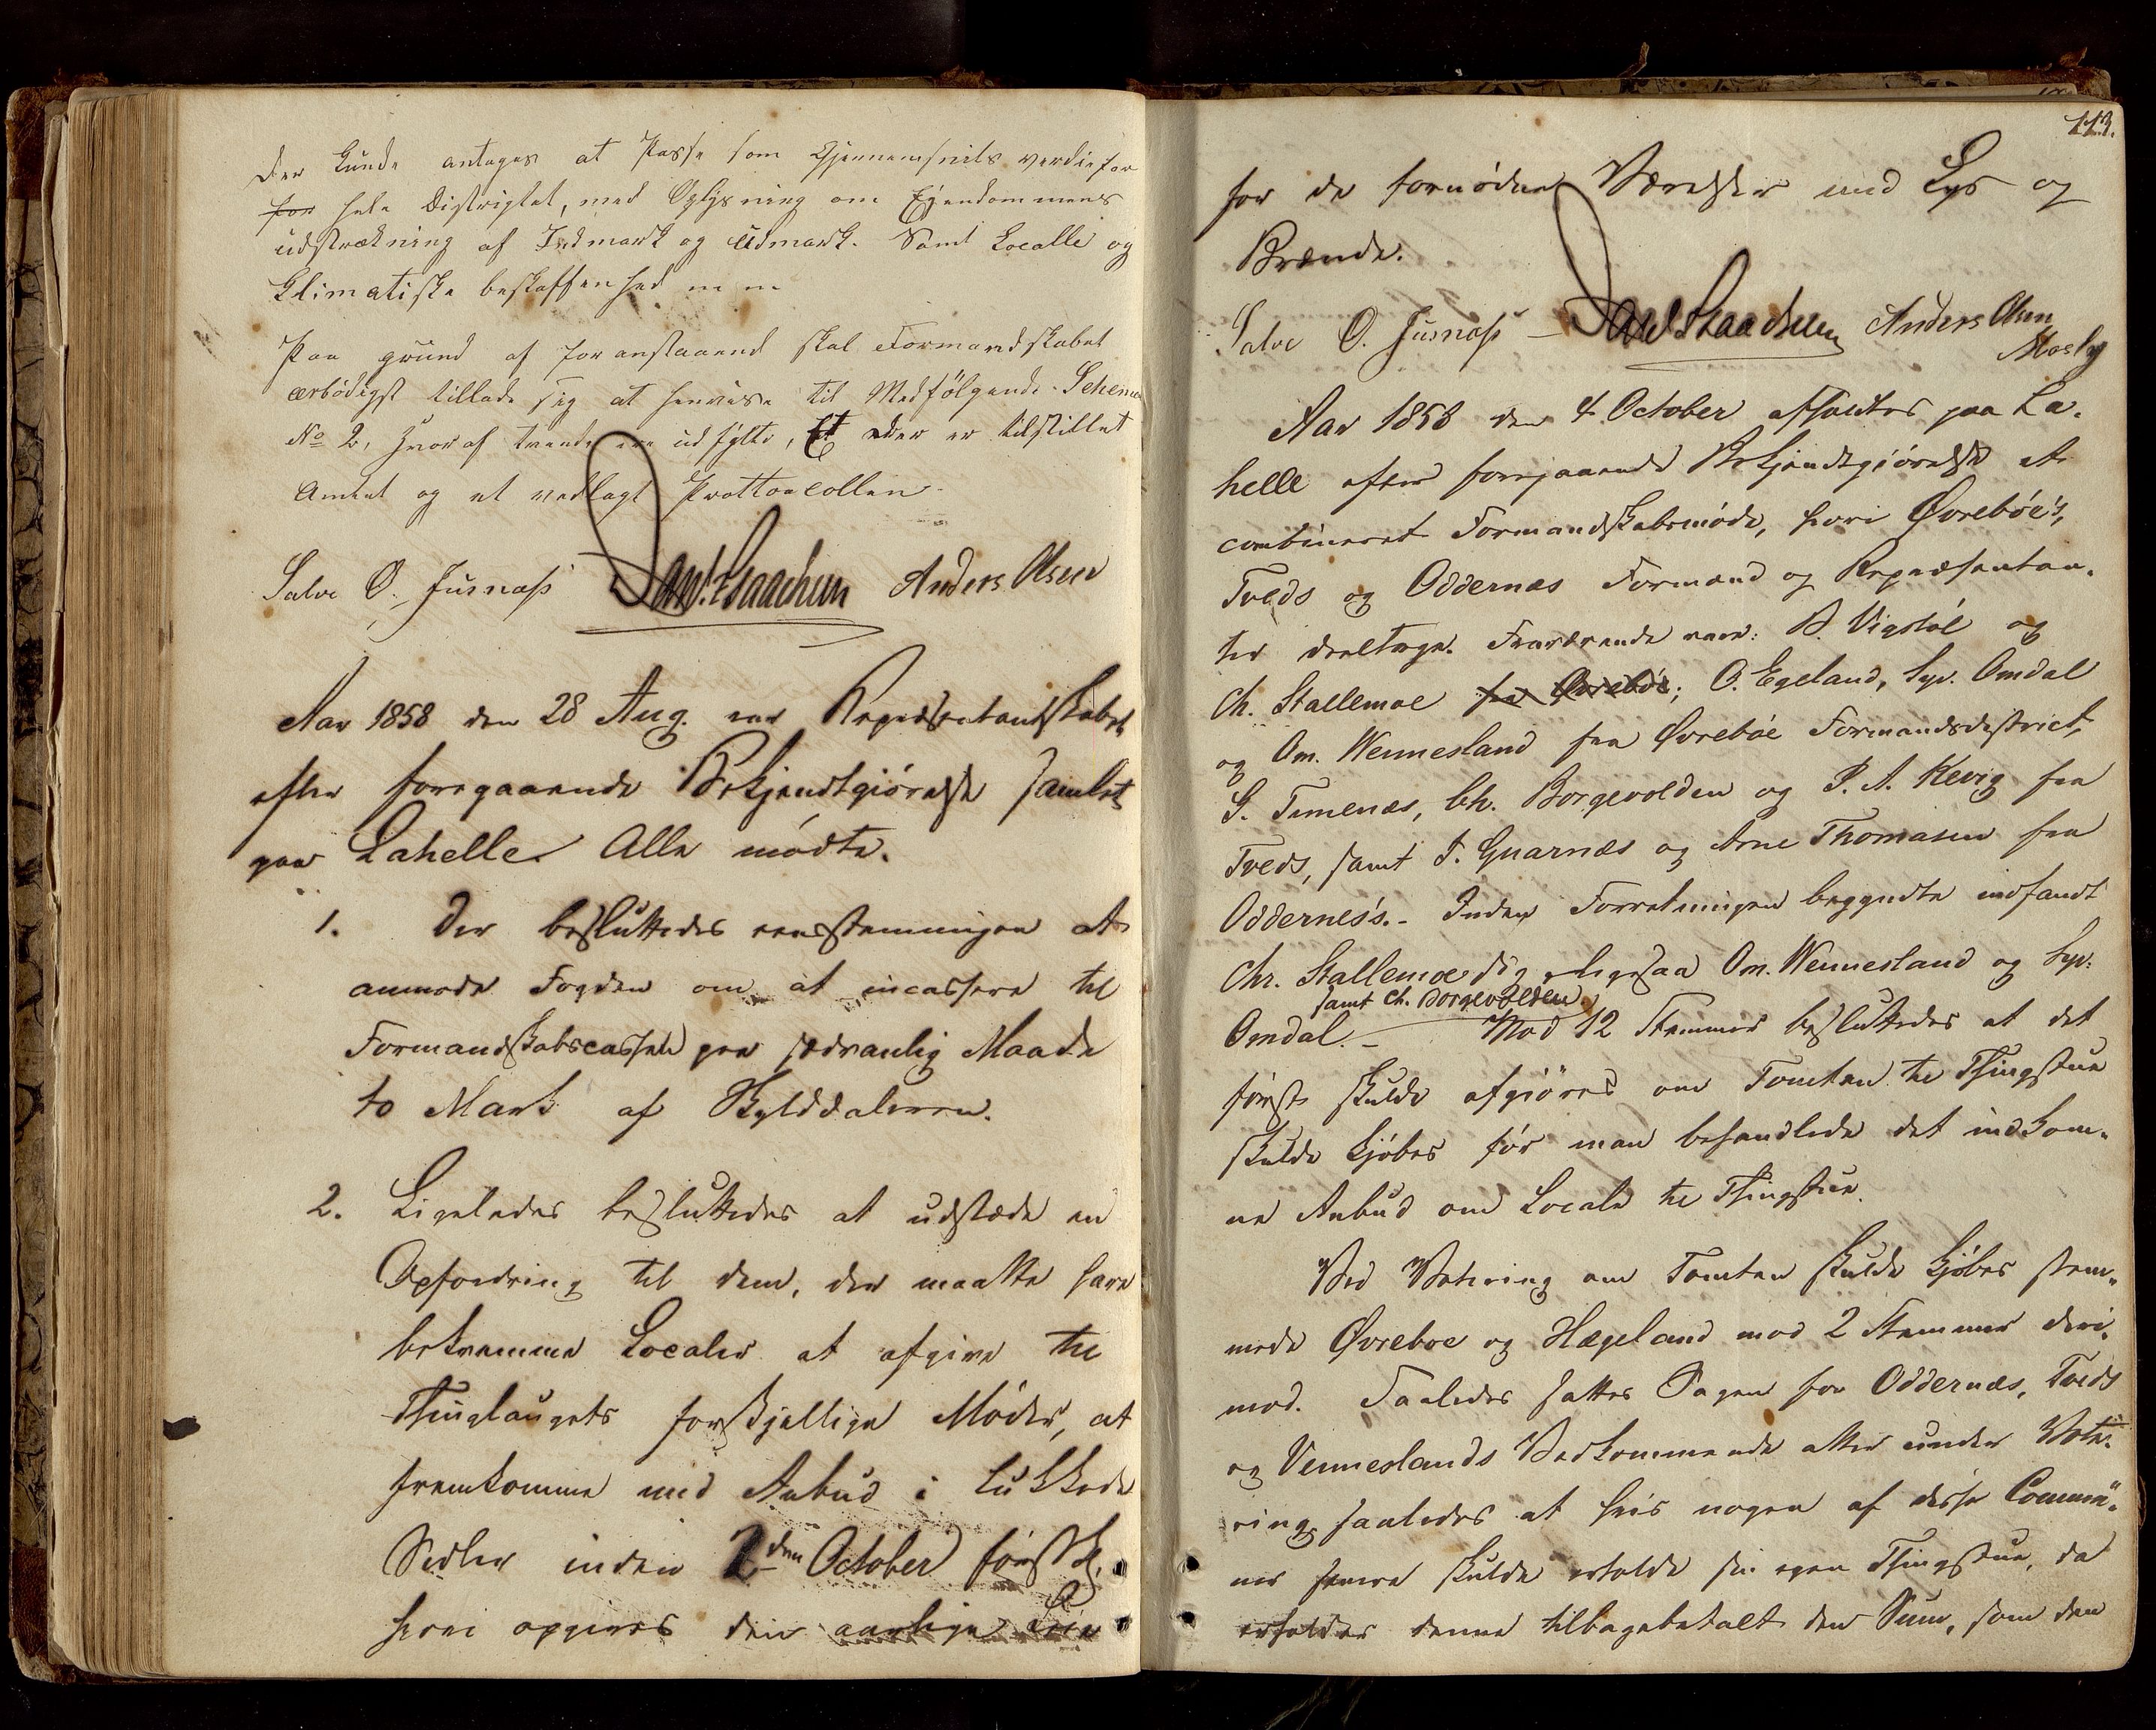 der kunde antages at Passe som Gjennemsnits verdie for
for hele Distrigtet, med Oplysning om Eijendommens
udstrækning af Indmark og Udmark. Samt Localle og
Klimatiske beskaffenhed m m
Paa grund af foranstaaend skal Formandskabet
ærbødigst tillade sig at henvise til Medfølgende Schema
No 2, hvoraf trende ere udfylte, Et  er tilstillet
Amtet og et vedlagt Prottocollen
Salve O. Jusnæss Dan. Isaachsen Anders Olsen
Aar 1858 den 28 Aug. var Repræsentantskabet
efter foregaaende Bekjendtgjørelse samlet
paa Lahelle. Alle mødte.
1. Der besluttedes eensstemmigen at
anmode Fogden om at incassere til
Formandskabscassen paa sædvanlig Maade
to Mark af Skylddaleren.
2. Ligeledes besluttedes at udstæde en
Opfordring til dem, der maatte have
bekvemme Localer at afgive til
Thinglaugets forskjellige Møder, at
fremkomme med Anbud i lukkede
Sedler inden 2den October førstk.
hvori opgives den aarlige Leie
113.
for de fornødne Værelser med Lys og
Brænde.
Salve O. Jusnæss – Dan Isaachsen Anders Olsen
Mosby
Aar 1858 den 4 October afholdtes paa La-
helle efter foregaaende Bekjendtgiørelse et
combineret Formandskabsmøde, hvori Øvrebøe's,
Tveds og Oddernæs Formænd og Repræsentan-
ter deeltoge. Fraværende vare: B. Vigstøl og
Ch. Stallemoe fra Øvrebøe; O. Egeland, Syv. Omdal
og Om. Wennesland fra Øvrebøe Formandsdistrict,
G. Timenæs, Ch. Borgevolden og P. A. Kevig fra
Tveds, samt T. Gvarnæs og Arne Thomasen fra
Oddernes's. – Inden Forretningen begyndte indfandt
Chr. Stallemoe sig, ligesaa Om. Wennesland og Syv:
samt Ch. Borgevolden
Omdal. – Mod 12 Stemmer besluttedes at det
først skulde afgiöres om Tomten til Thingstue
skulde kjøbes før man behandlede det indkom-
ne Anbud om Locale til Thingstue.
Ved Votering om Tomten skulde kjøbes stem-
mede Øvreboe og Hægeland mod 2 Stemmer deri-
mod. Saaledes sattes Sagen for Oddernæs, Tveds
og Venneslands Vedkommende atter under Vote-
ring, saaledes at hvis nogen af disse Commu-
ner senere skulde erholde sin egen Thingstue, da
erholder denne tilbagebetalt den Sum, som den